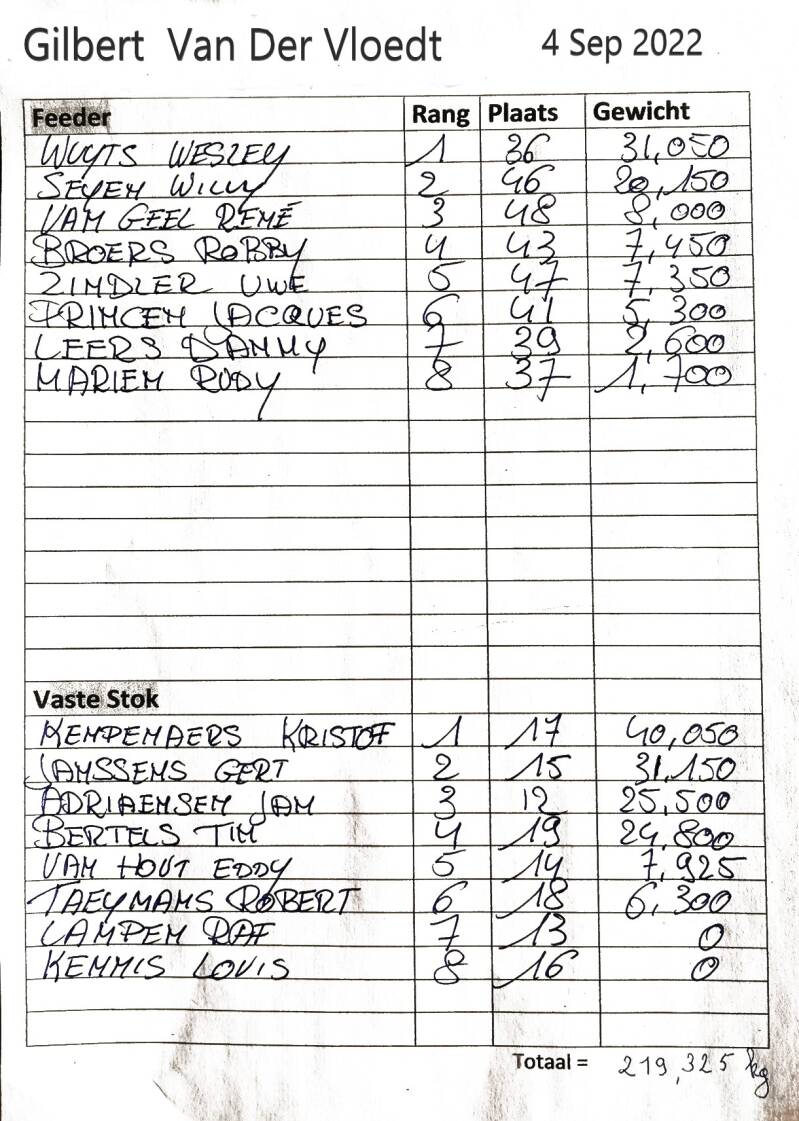 Gilbert Van Der Vloedt 4 Sep 2022
Feeder Rang Plaats Gewicht
WUYTS WESLEY 1 36 31,050
SEYEN WILLY 2 46 20,150
VAN GEEL RENÉ 3 48 8,000
BROERS ROBBY 4 43 7,450
ZINDLER UWE 5 47 7,350
PRINCEN JACQUES 6 41 5,300
LEERS DANNY 7 39 2,600
MARIEN RUDY 8 37 1,700
Vaste Stok
KEMPENAERS KRISTOF 1 17 40,050
JANSSENS GERT 2 15 31,150
ADRIAENSEN JAN 3 12 25,500
BERTELS TIM 4 19 24,800
VAN HOUT EDDY 5 14 7,925
TAEYMANS ROBERT 6 18 6,300
LAMPEN RAF 7 13 0
KENNIS LOUIS 8 16 0
Totaal = 219,325 kg